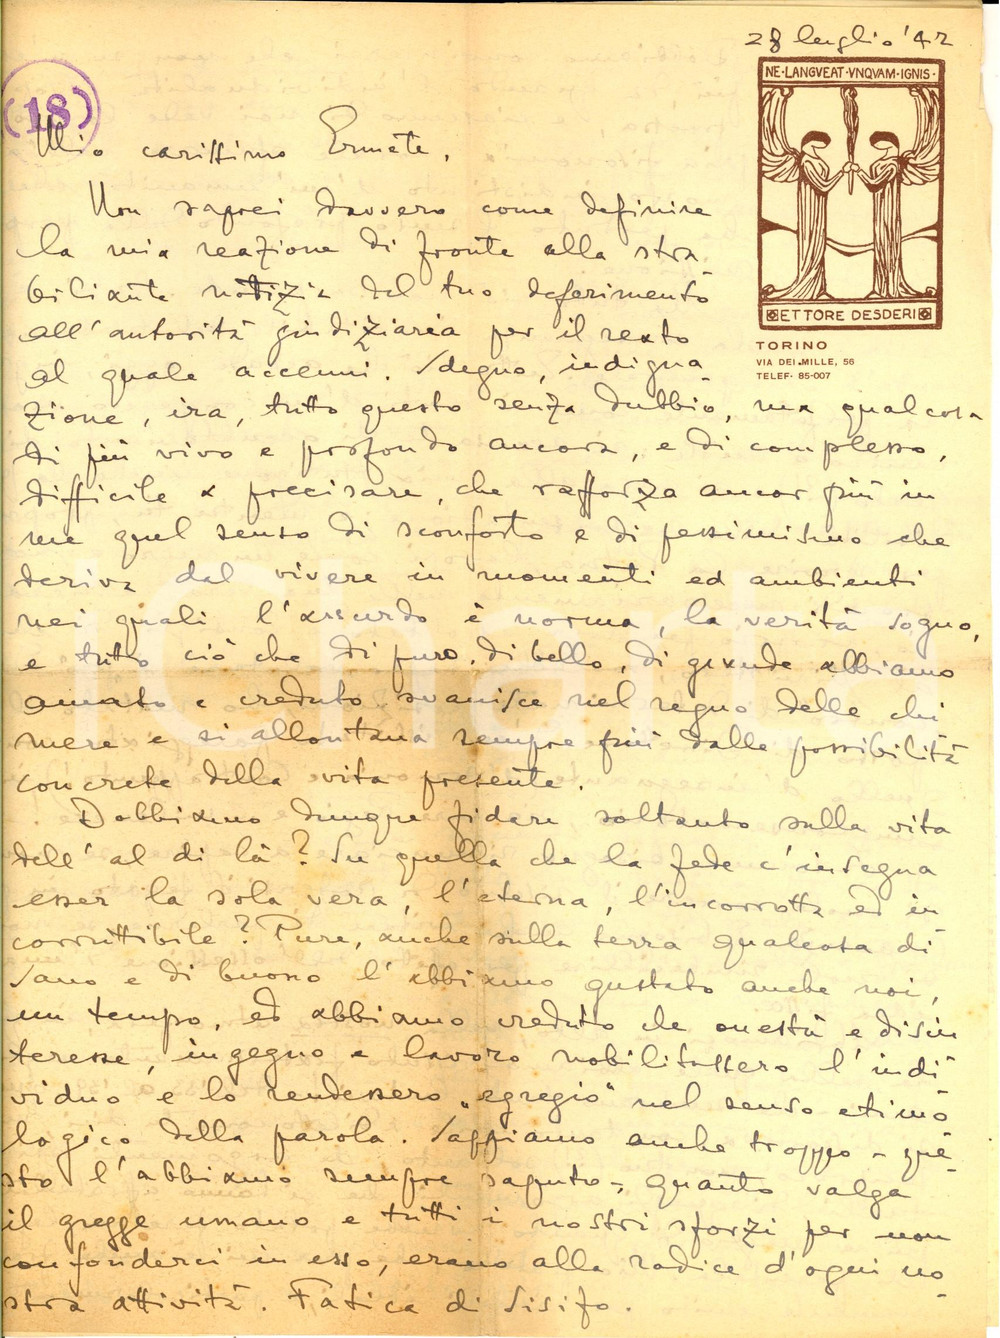 28 luglio '42
NE·LANGVEAT·VNQVAM·IGNIS·
ETTORE DESDERI
TORINO
VIA DEI MILLE, 56
TELEF· 85-007
(18)
Mio carissimo Ermete,
Non saprei davvero come definire
la mia reazione di fronte alla stra
biliante notizia del tuo deferimento
all'autorità giudiziaria per il reato
al quale accenni. Sdegno, indigna-
zione, ira, tutto questo senza dubbio, ma qualcosa
di più vivo e profondo ancora, e di complesso,
difficile a precisare, che rafforza ancor più in
me quel senso di sconforto e di pessimismo che
deriva dal vivere in momenti ed ambienti
nei quali l'assurdo è norma, la verità sogno,
e tutto ciò che di puro, di bello, di grande abbiamo
amato e creduto svanisce nel regno delle chi
mere e si allontana sempre più dalle possibilità
concrete della vita presente.
Dobbiamo dunque fidare soltanto sulla vita
dell'al di là? Su quella che la fede c'insegna
esser la sola vera, l'eterna, l'incorrotta ed in-
corruttibile? Pure, anche sulla terra qualcosa di
sano e di buono l'abbiamo gustato anche noi,
un tempo, ed abbiamo creduto che onestà e disin
teresse, ingegno e lavoro nobilitassero l'indi-
viduo e lo rendessero "egregio" nel senso etimo-
logico della parola. Sappiamo anche troppo - que-
sto l'abbiamo sempre saputo -, quanto valga
il gregge umano e tutti i nostri sforzi per non
confonderci in esso, erano alla radice d'ogni no-
stra attività. Fatica di Sisifo.